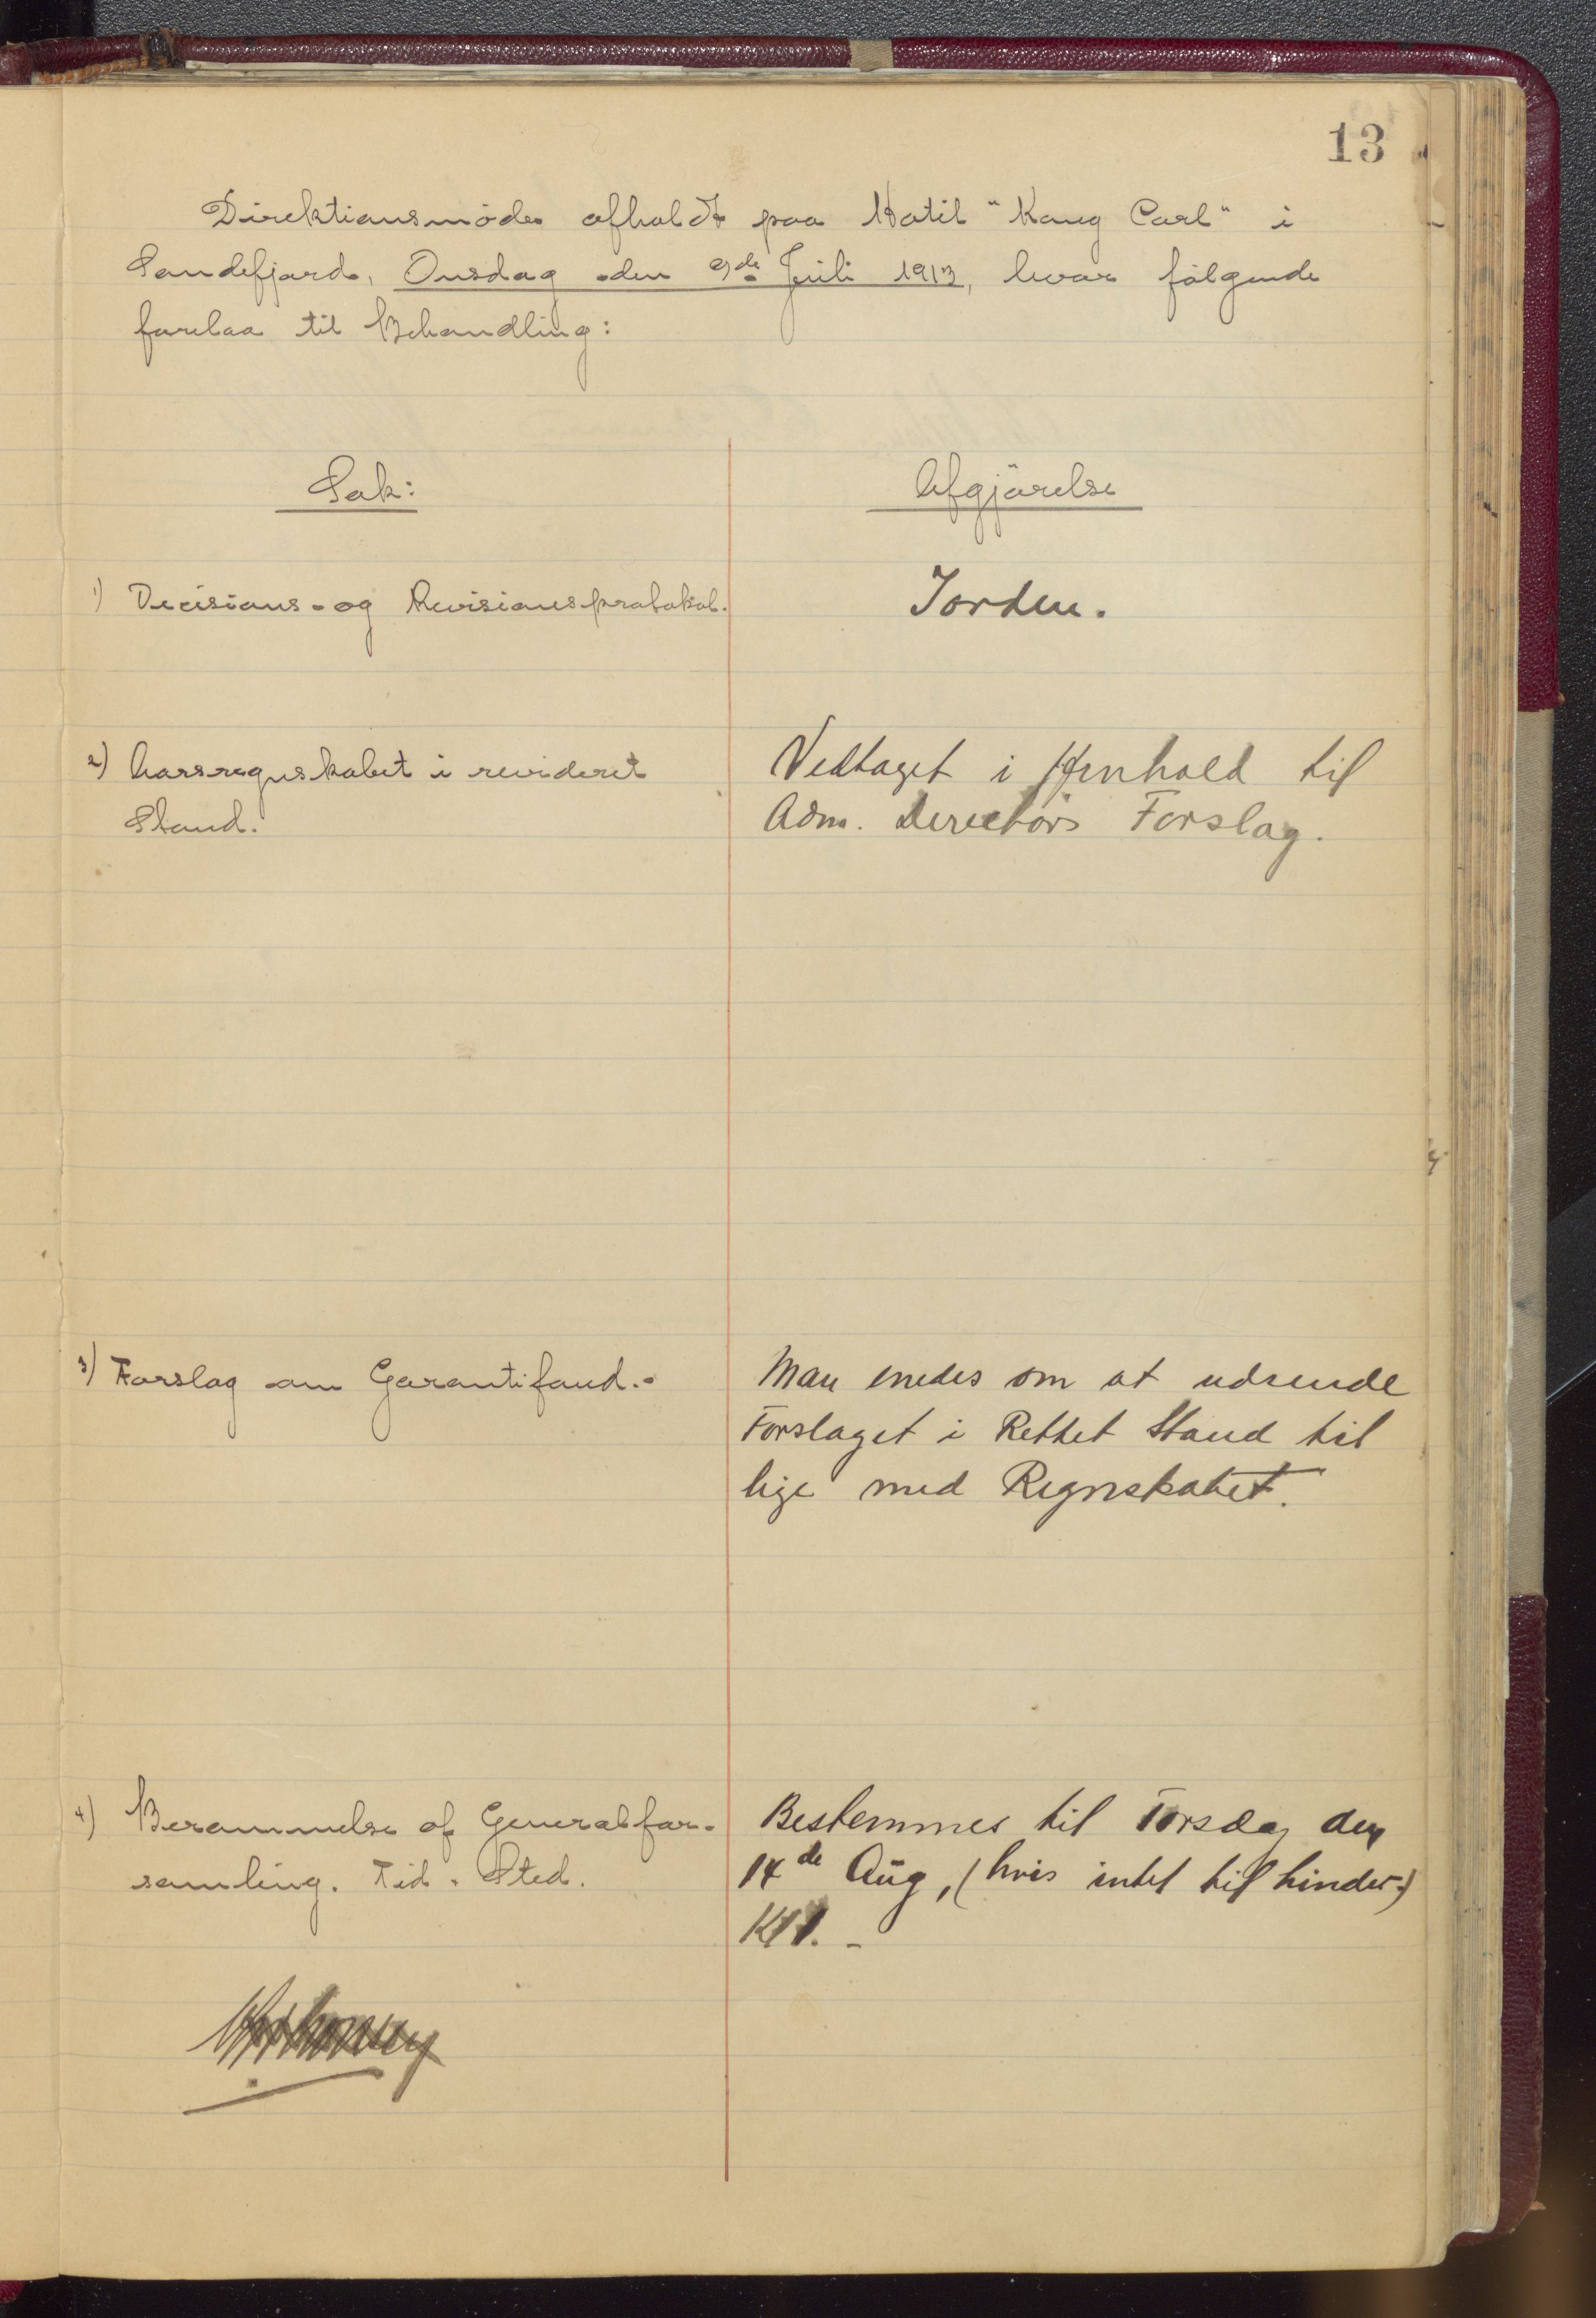 13
Direktionsmöde afholdt paa Hotel "Kong Carl" i
Sandefjord, Onsdag den 9de Juli 1913, hvor følgende
forelaa til Behandling:
Sak:
Afgjörelse
1) Decisions- og Revisionsprotokol.
I orden.
2) Aarsregnskabet i revideret
Stand.
Vedtaget i Henhold til
Adm. Directørs Forslag.
3) Forslag om Garantifond.-
Man enedes om at udsende
Forslaget i Rettet Stand til
lige med Regnskabet.
4) Berammelse af Generalfor-
samling. Tid. Sted.
Bestemmes til Torsdag den
14de Aug, (hvis intet til hinder)
Kl 1. -